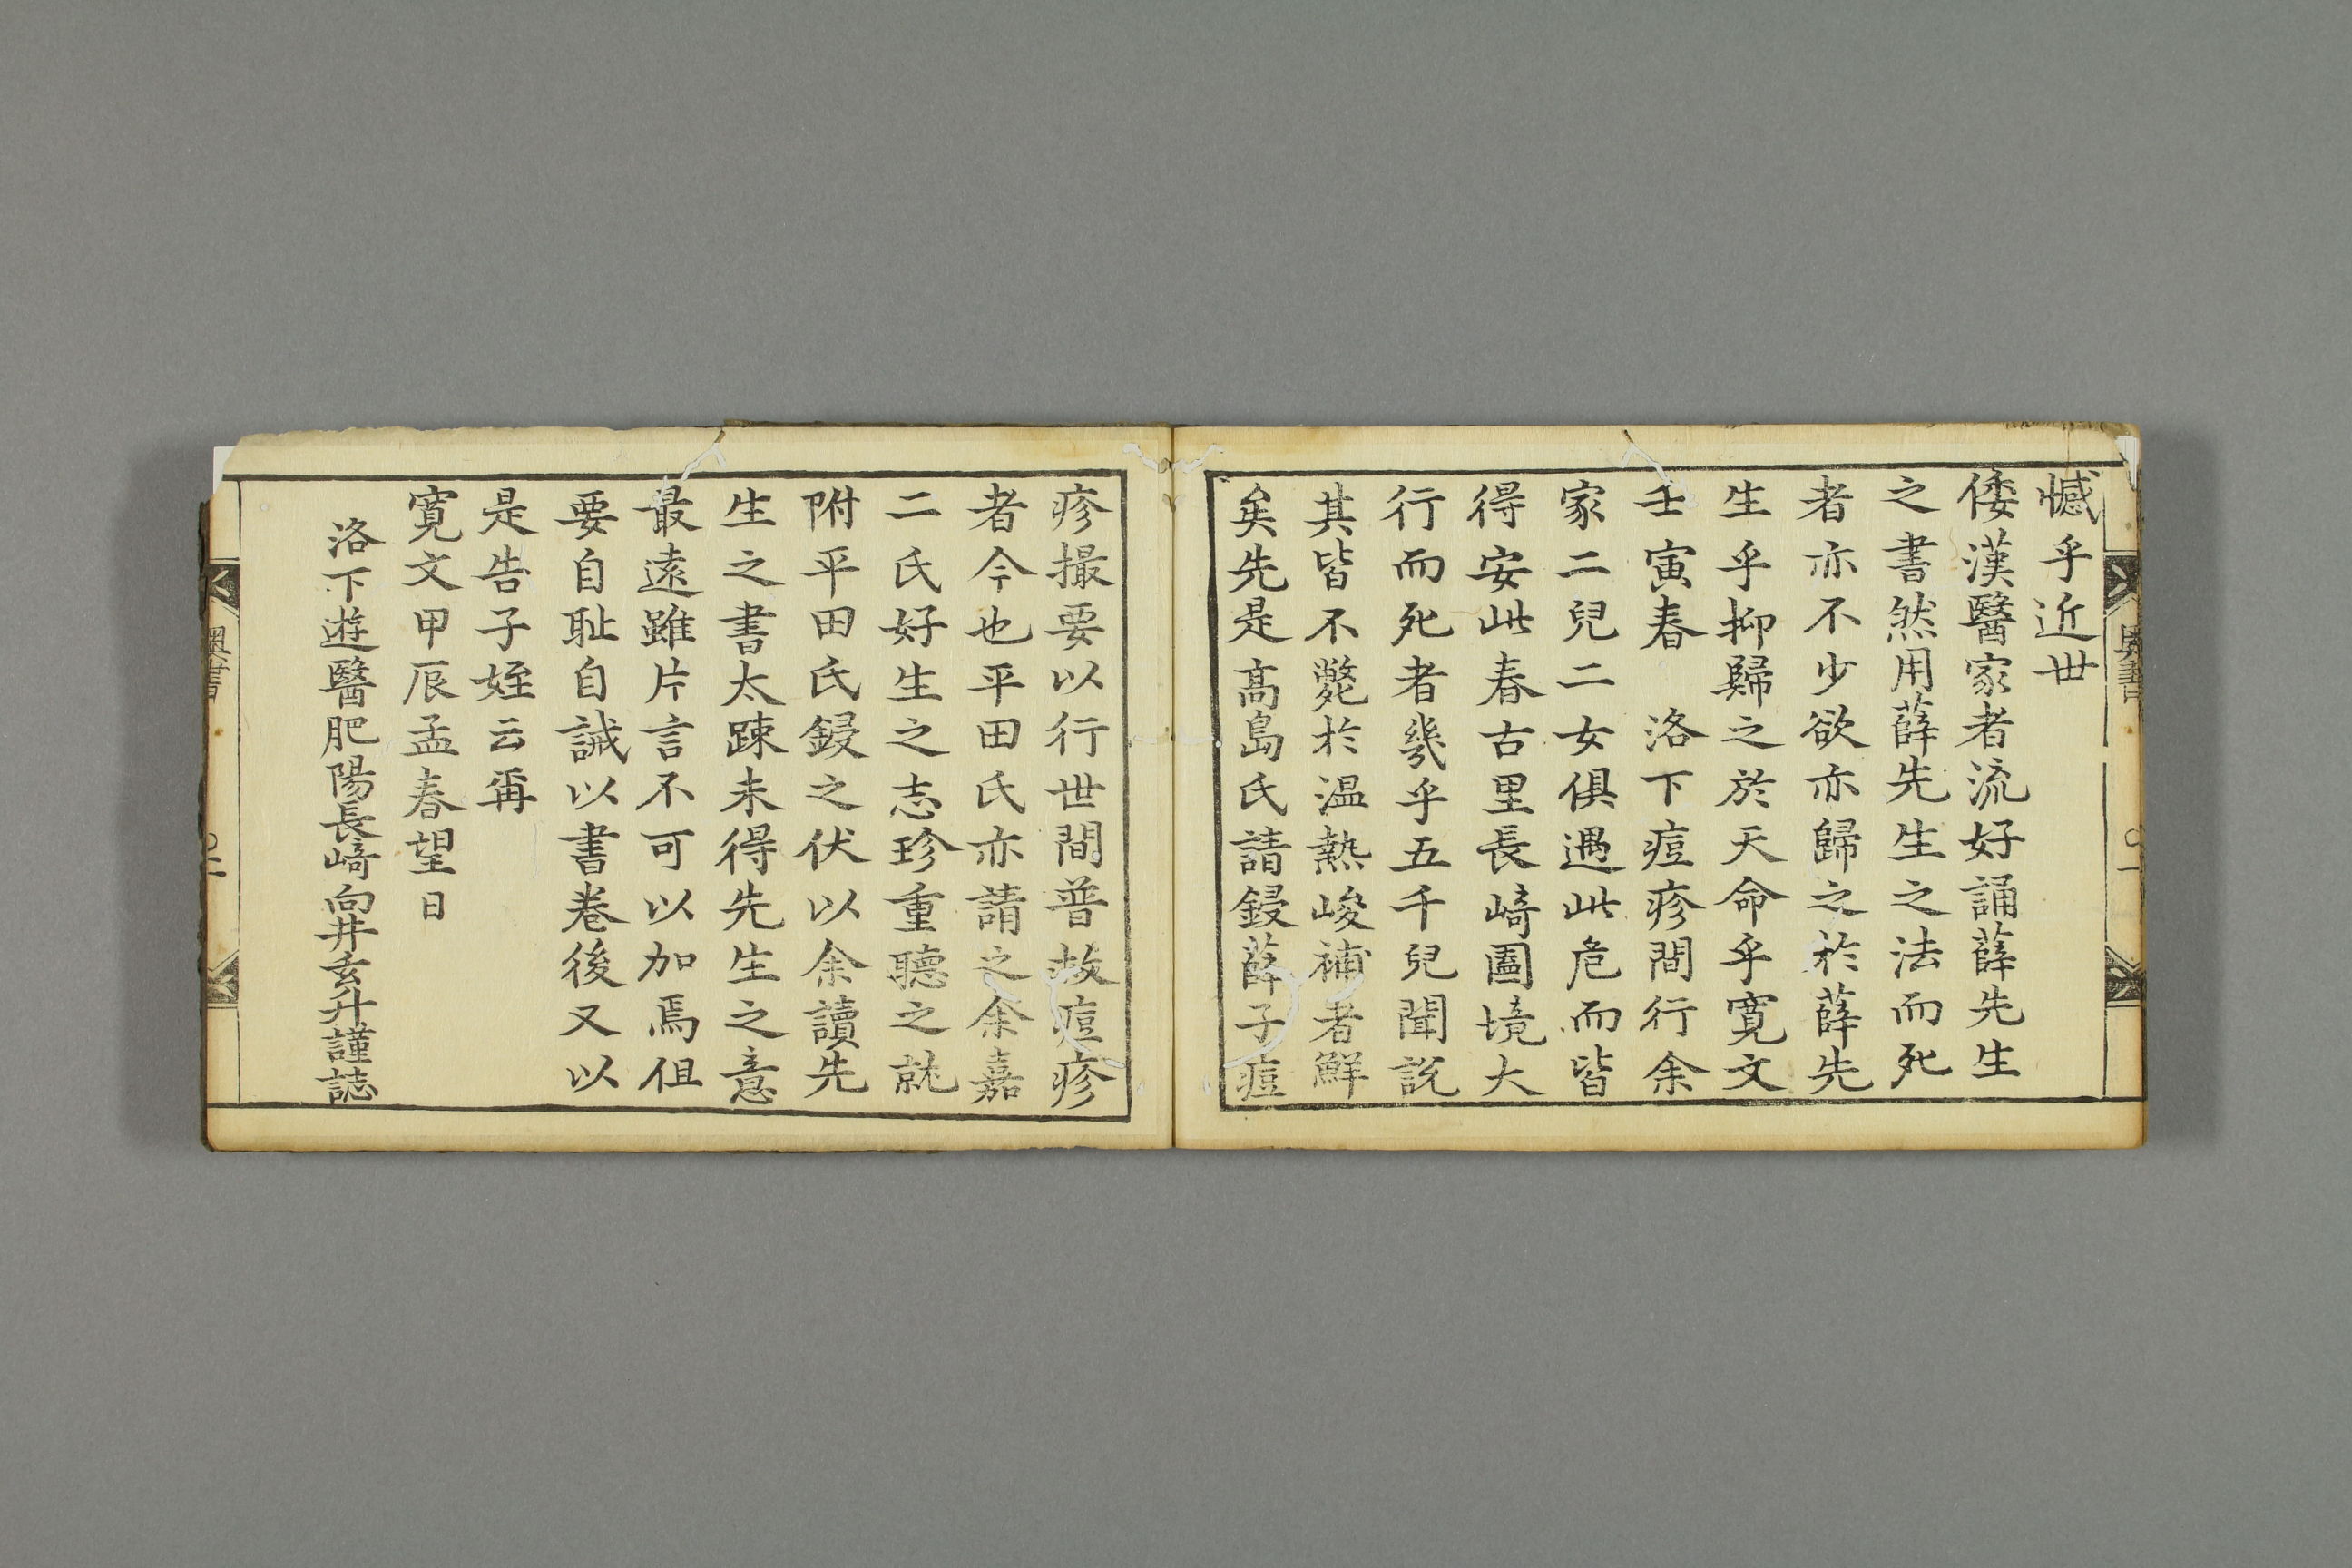 憾乎近世
倭漢醫家者流好誦薛先生
之書然用薛先生之法而死
者亦不少欲亦歸之於薛先
生乎抑歸之於天命乎寛文
壬寅春 洛下痘疹間行余
家二兒二女俱遇此危而皆
得安此春古里長崎圖境大
行而死者幾乎五千兒聞說
其皆不斃於温熱峻補者鮮
矣先是髙島氏請鋟薛子痘
疹撮要以行世間普救痘疹
者今也平田氏亦請之余嘉
二氏好生之志珍重聽之就
附平田氏鋟之伏以余讀先
生之書太踈未得先生之意
最遠雖片言不可以加焉但
要自耻自誡以書卷後又以
是告子姪云爾
寛文甲辰孟春望日
洛下遊醫肥陽長﨑向井玄升謹誌
奥書
〇一
奥書
〇二